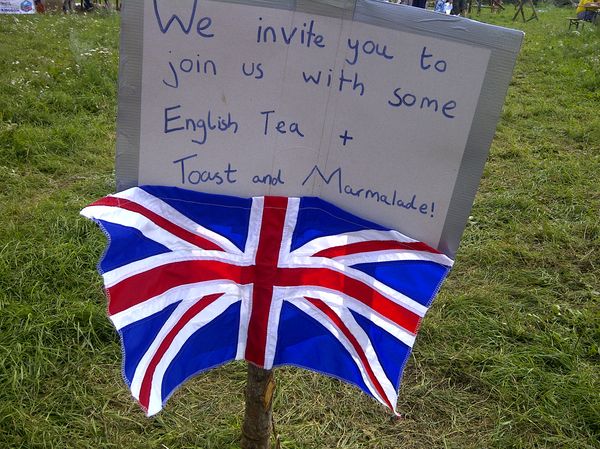 We invite you to
join us with some
English Tea +
Toast and Marmalade!